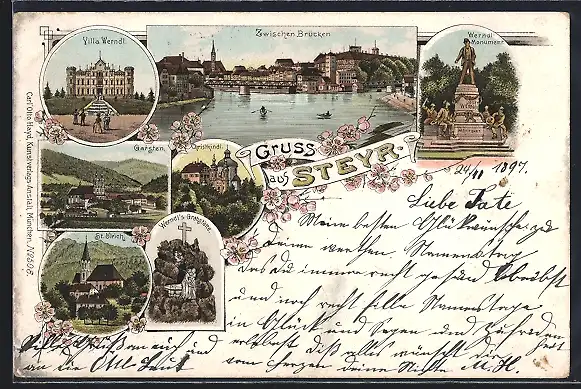 Villa Werndl.
Zwischen Brücken
Werndl
Monument
Garsten.
Christkindl.
Gruss
aus STEYR.
St. Ulrich.
Werndl's Grabstätte
Carl Otto Hayd, Kunstverlags-Anstalt, München.
24/11 1897.
Liebe Tate
Meine besten Glückwünsche zu
deinem werthen Namenstag
das du immer recht gesund
und noch recht viele Namenstage
in Glück und Segen und Zufriedenheit
erlebst dieß alles wünscht dir
vom Herzen deine Nichte M. H.